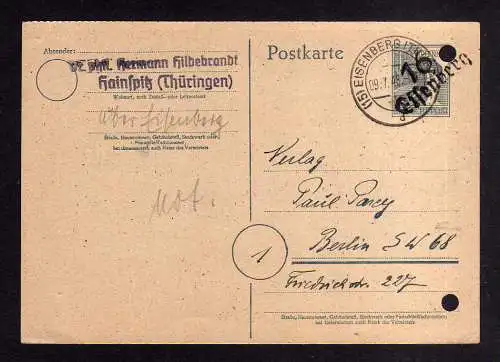 Absender:
Dr. phil. Hermann Hildebrandt
Hainspitz (Thüringen)
Wohnort, auch Zustell- oder Leitpostamt
über Eisenberg
Straße, Hausnummer, Gebäudeteil, Stockwerk oder
Postschließfachnummer
bei Untermietern auch Name des Vermieters
Not.
Postkarte
(15) EISENBERG (THÜR)
16
Eisenberg
Verlag
Paul Parey
1
Berlin SW 68
Friedrichstr. 227
Straße, Hausnummer, Gebäudeteil, Stockwerk oder Postschließfachnummer,
bei Untermietern auch Name des Vermieters